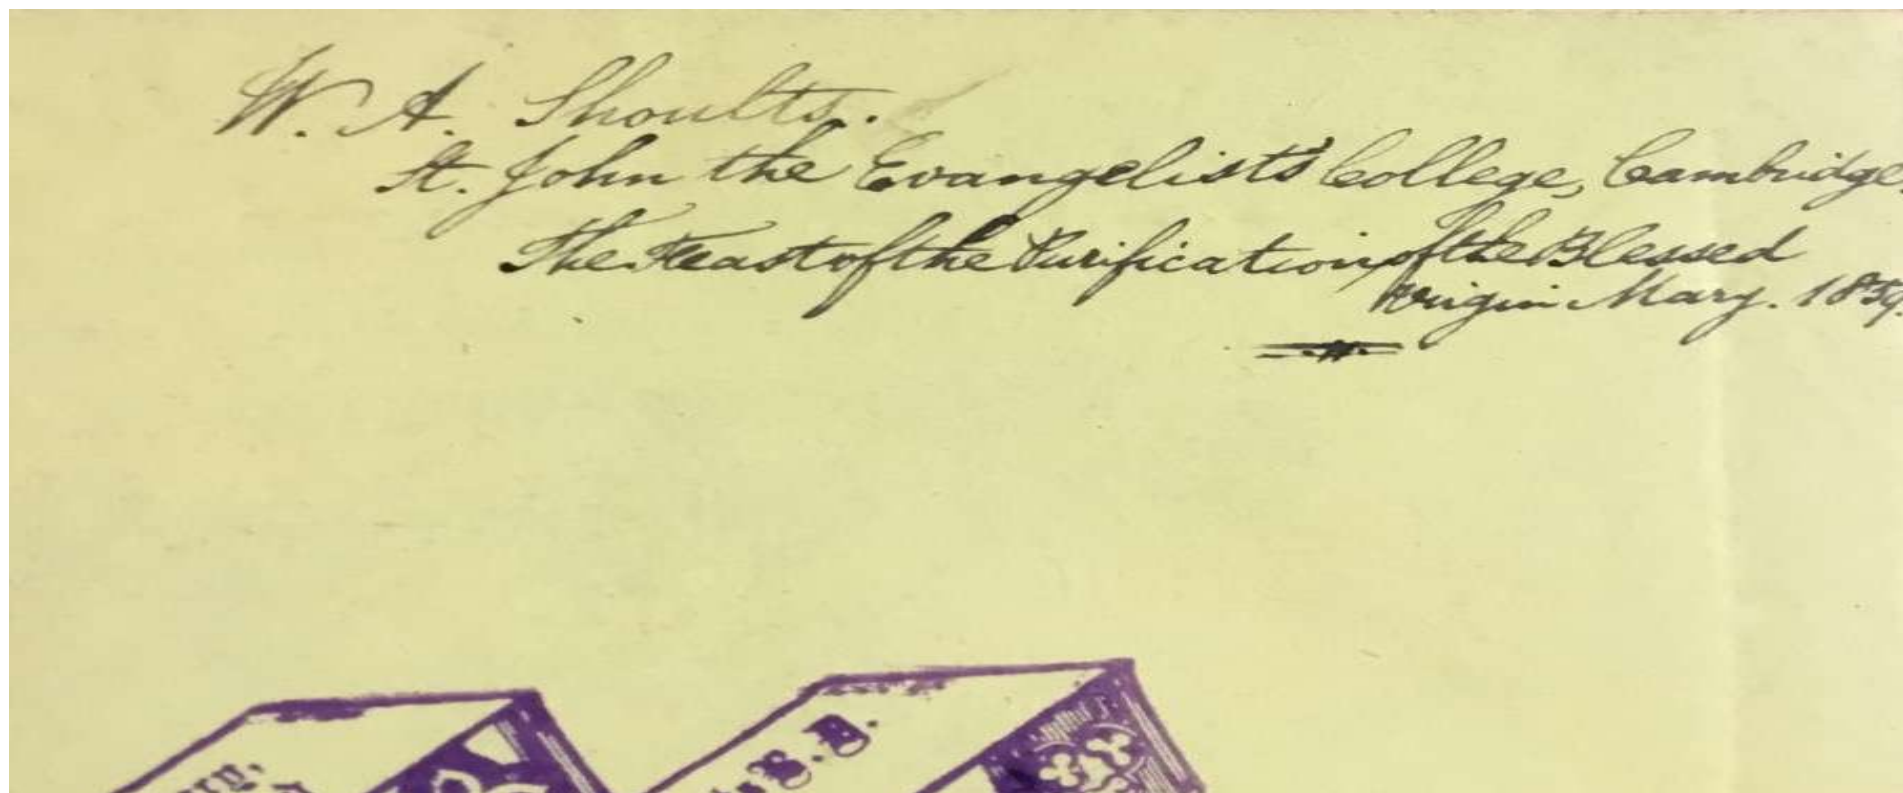 W. A. Shoults.
St. John the Evangelist's College, Cambridge.
The Feast of the Purification of the Blessed
Virgin Mary. 1859.
S. B.